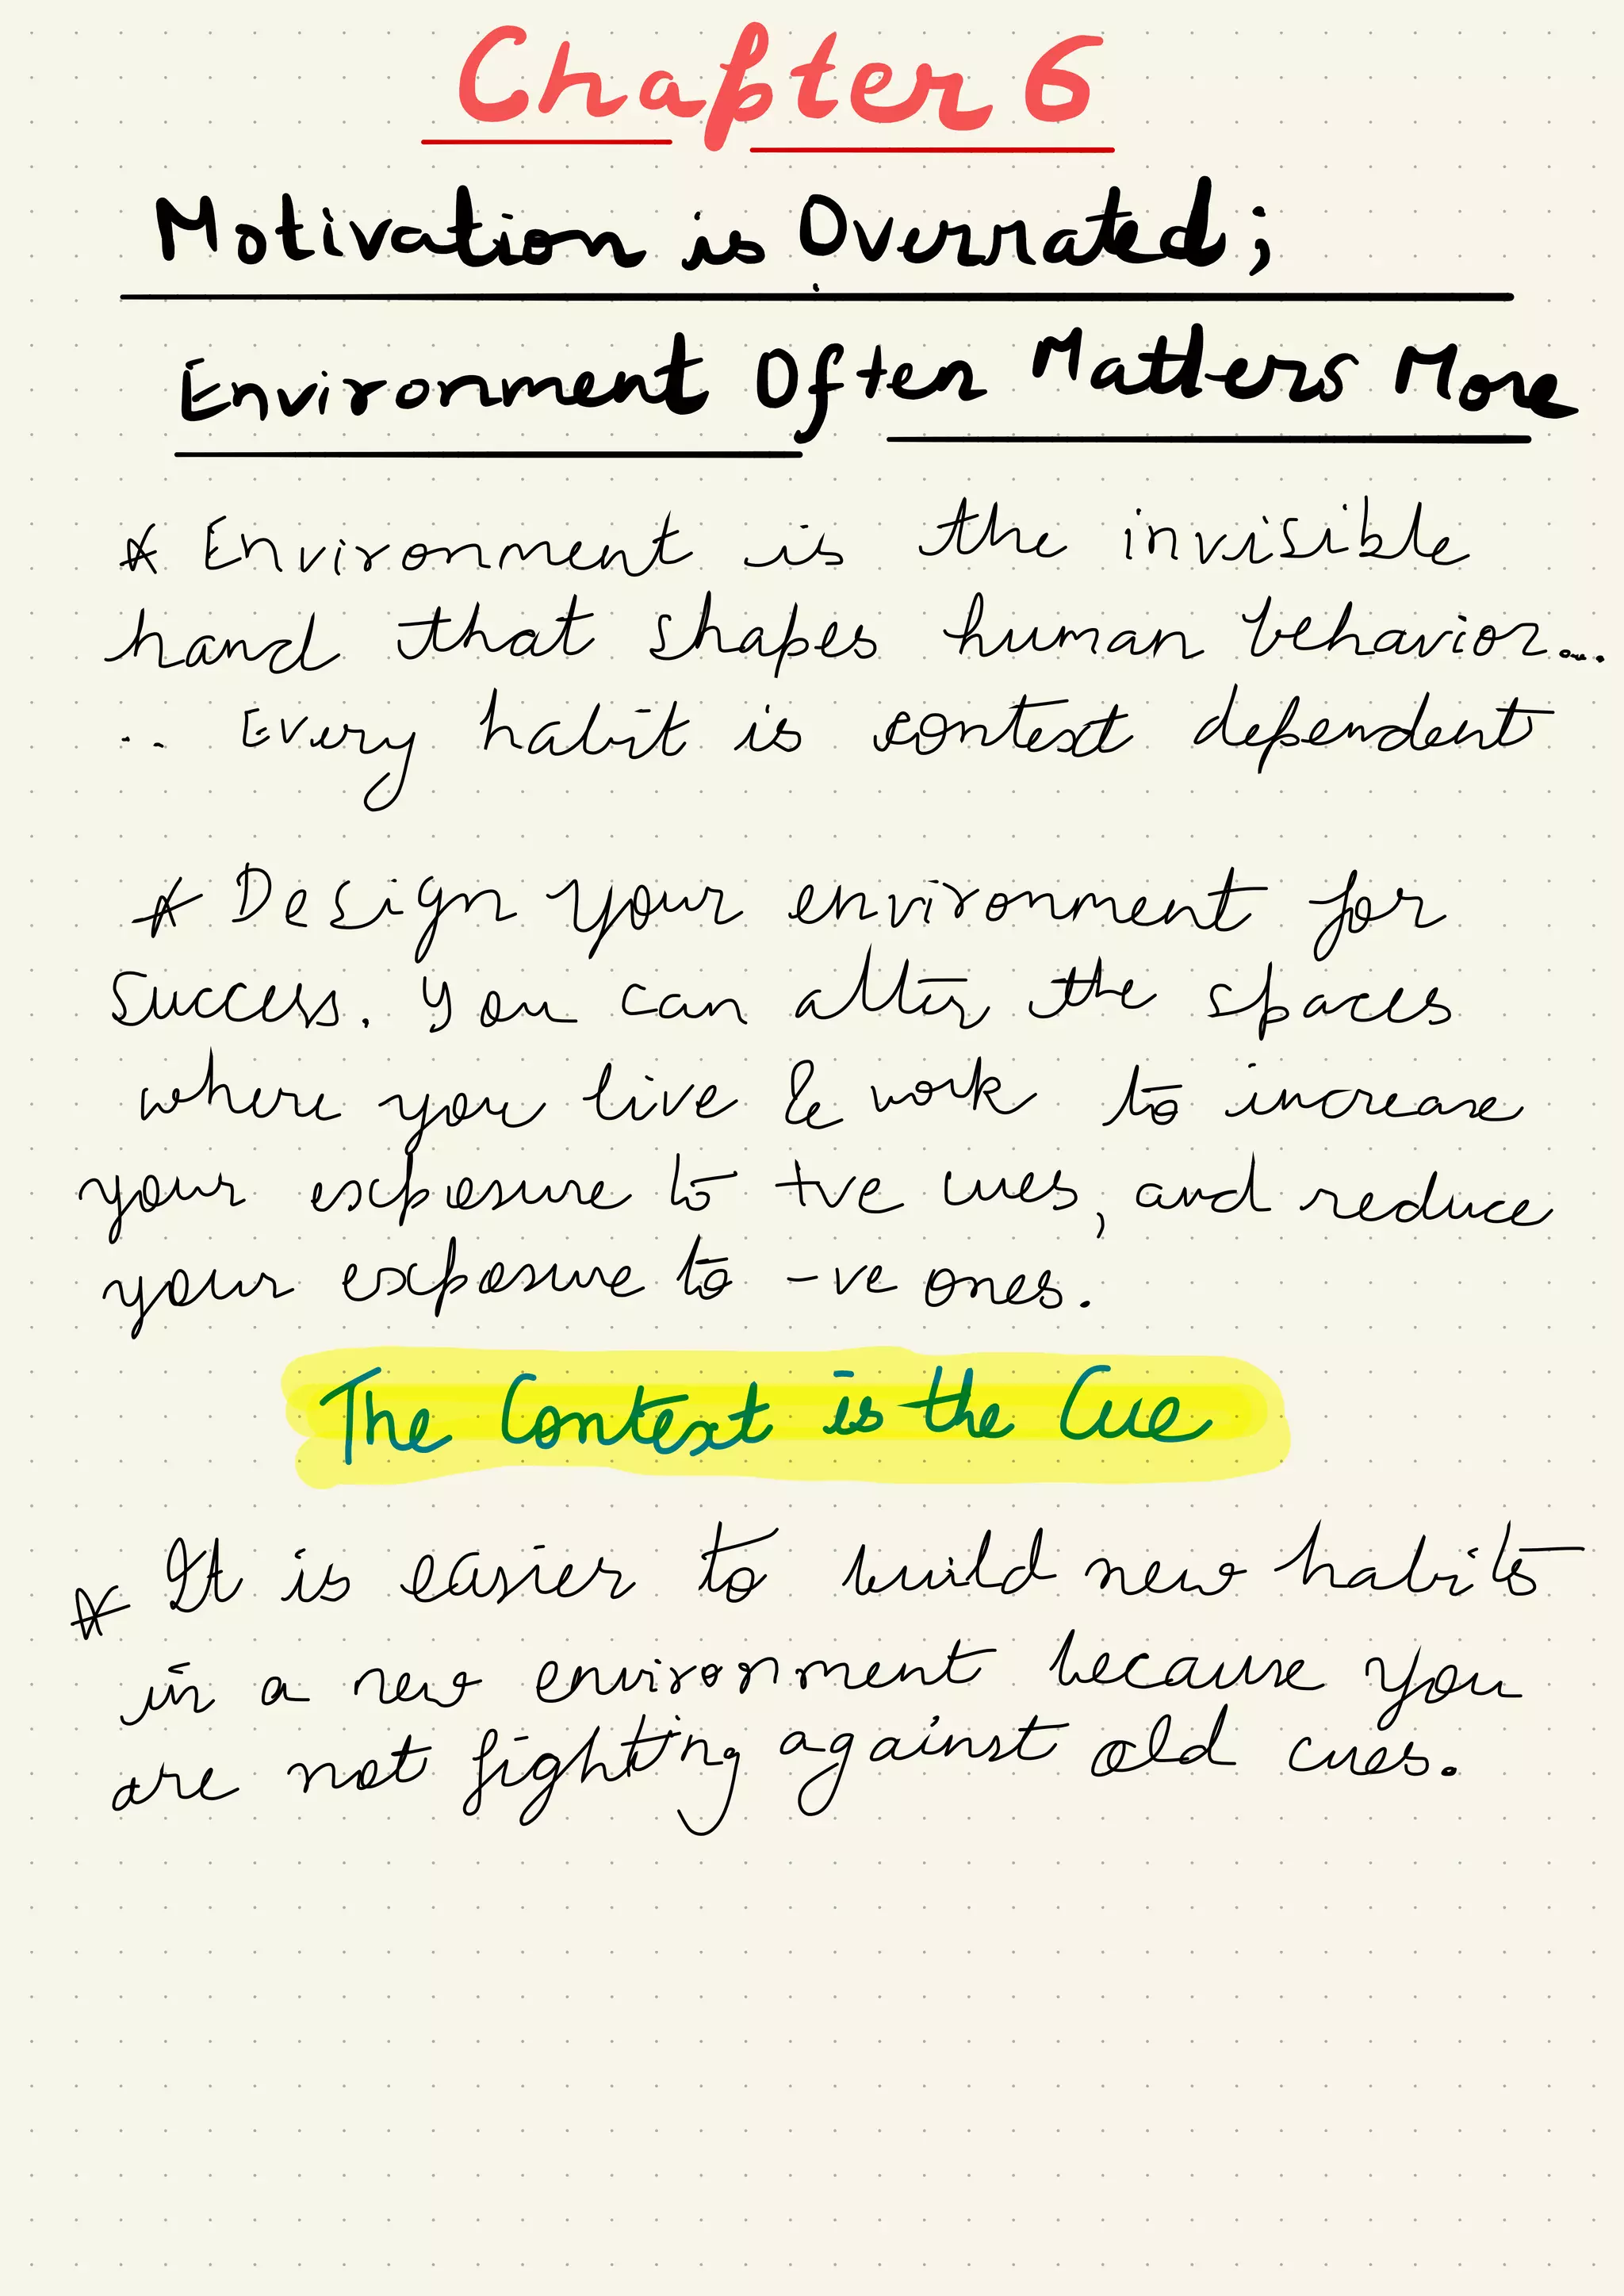 Chapter 6
Motivation is Overrated;
Environment Often Matters More
* Environment is the invisible
hand that shapes human behavior...
.. Every habit is context dependent
* Design your environment for
Success. You can alter the spaces
where you live & work to increase
your exposure to +ve cues, and reduce
your exposure to -ve ones.
The Context is the Cue
* It is easier to build new habits
in a new environment because you
are not fighting against old cues.